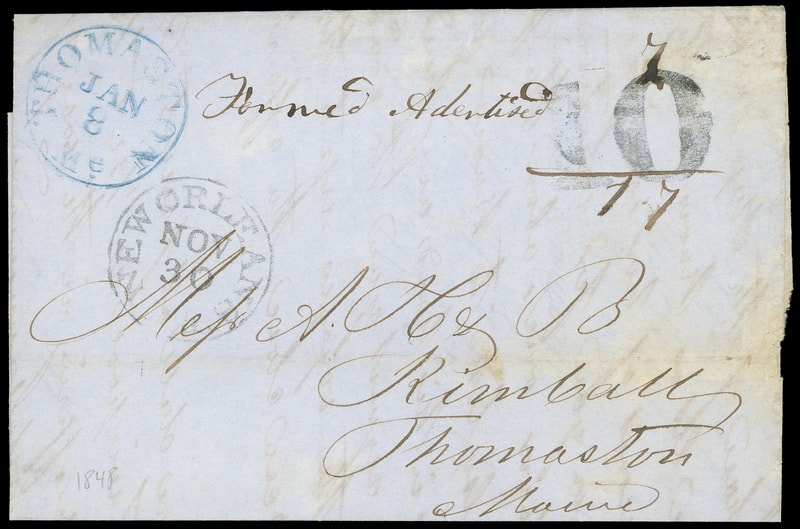 THOMASTON
JAN
8
Me
Forwed Adertised
7
10
17
NEW ORLEANS
NOV
30
Mess A. H & B
Kimball
Thomaston
Maine
1848